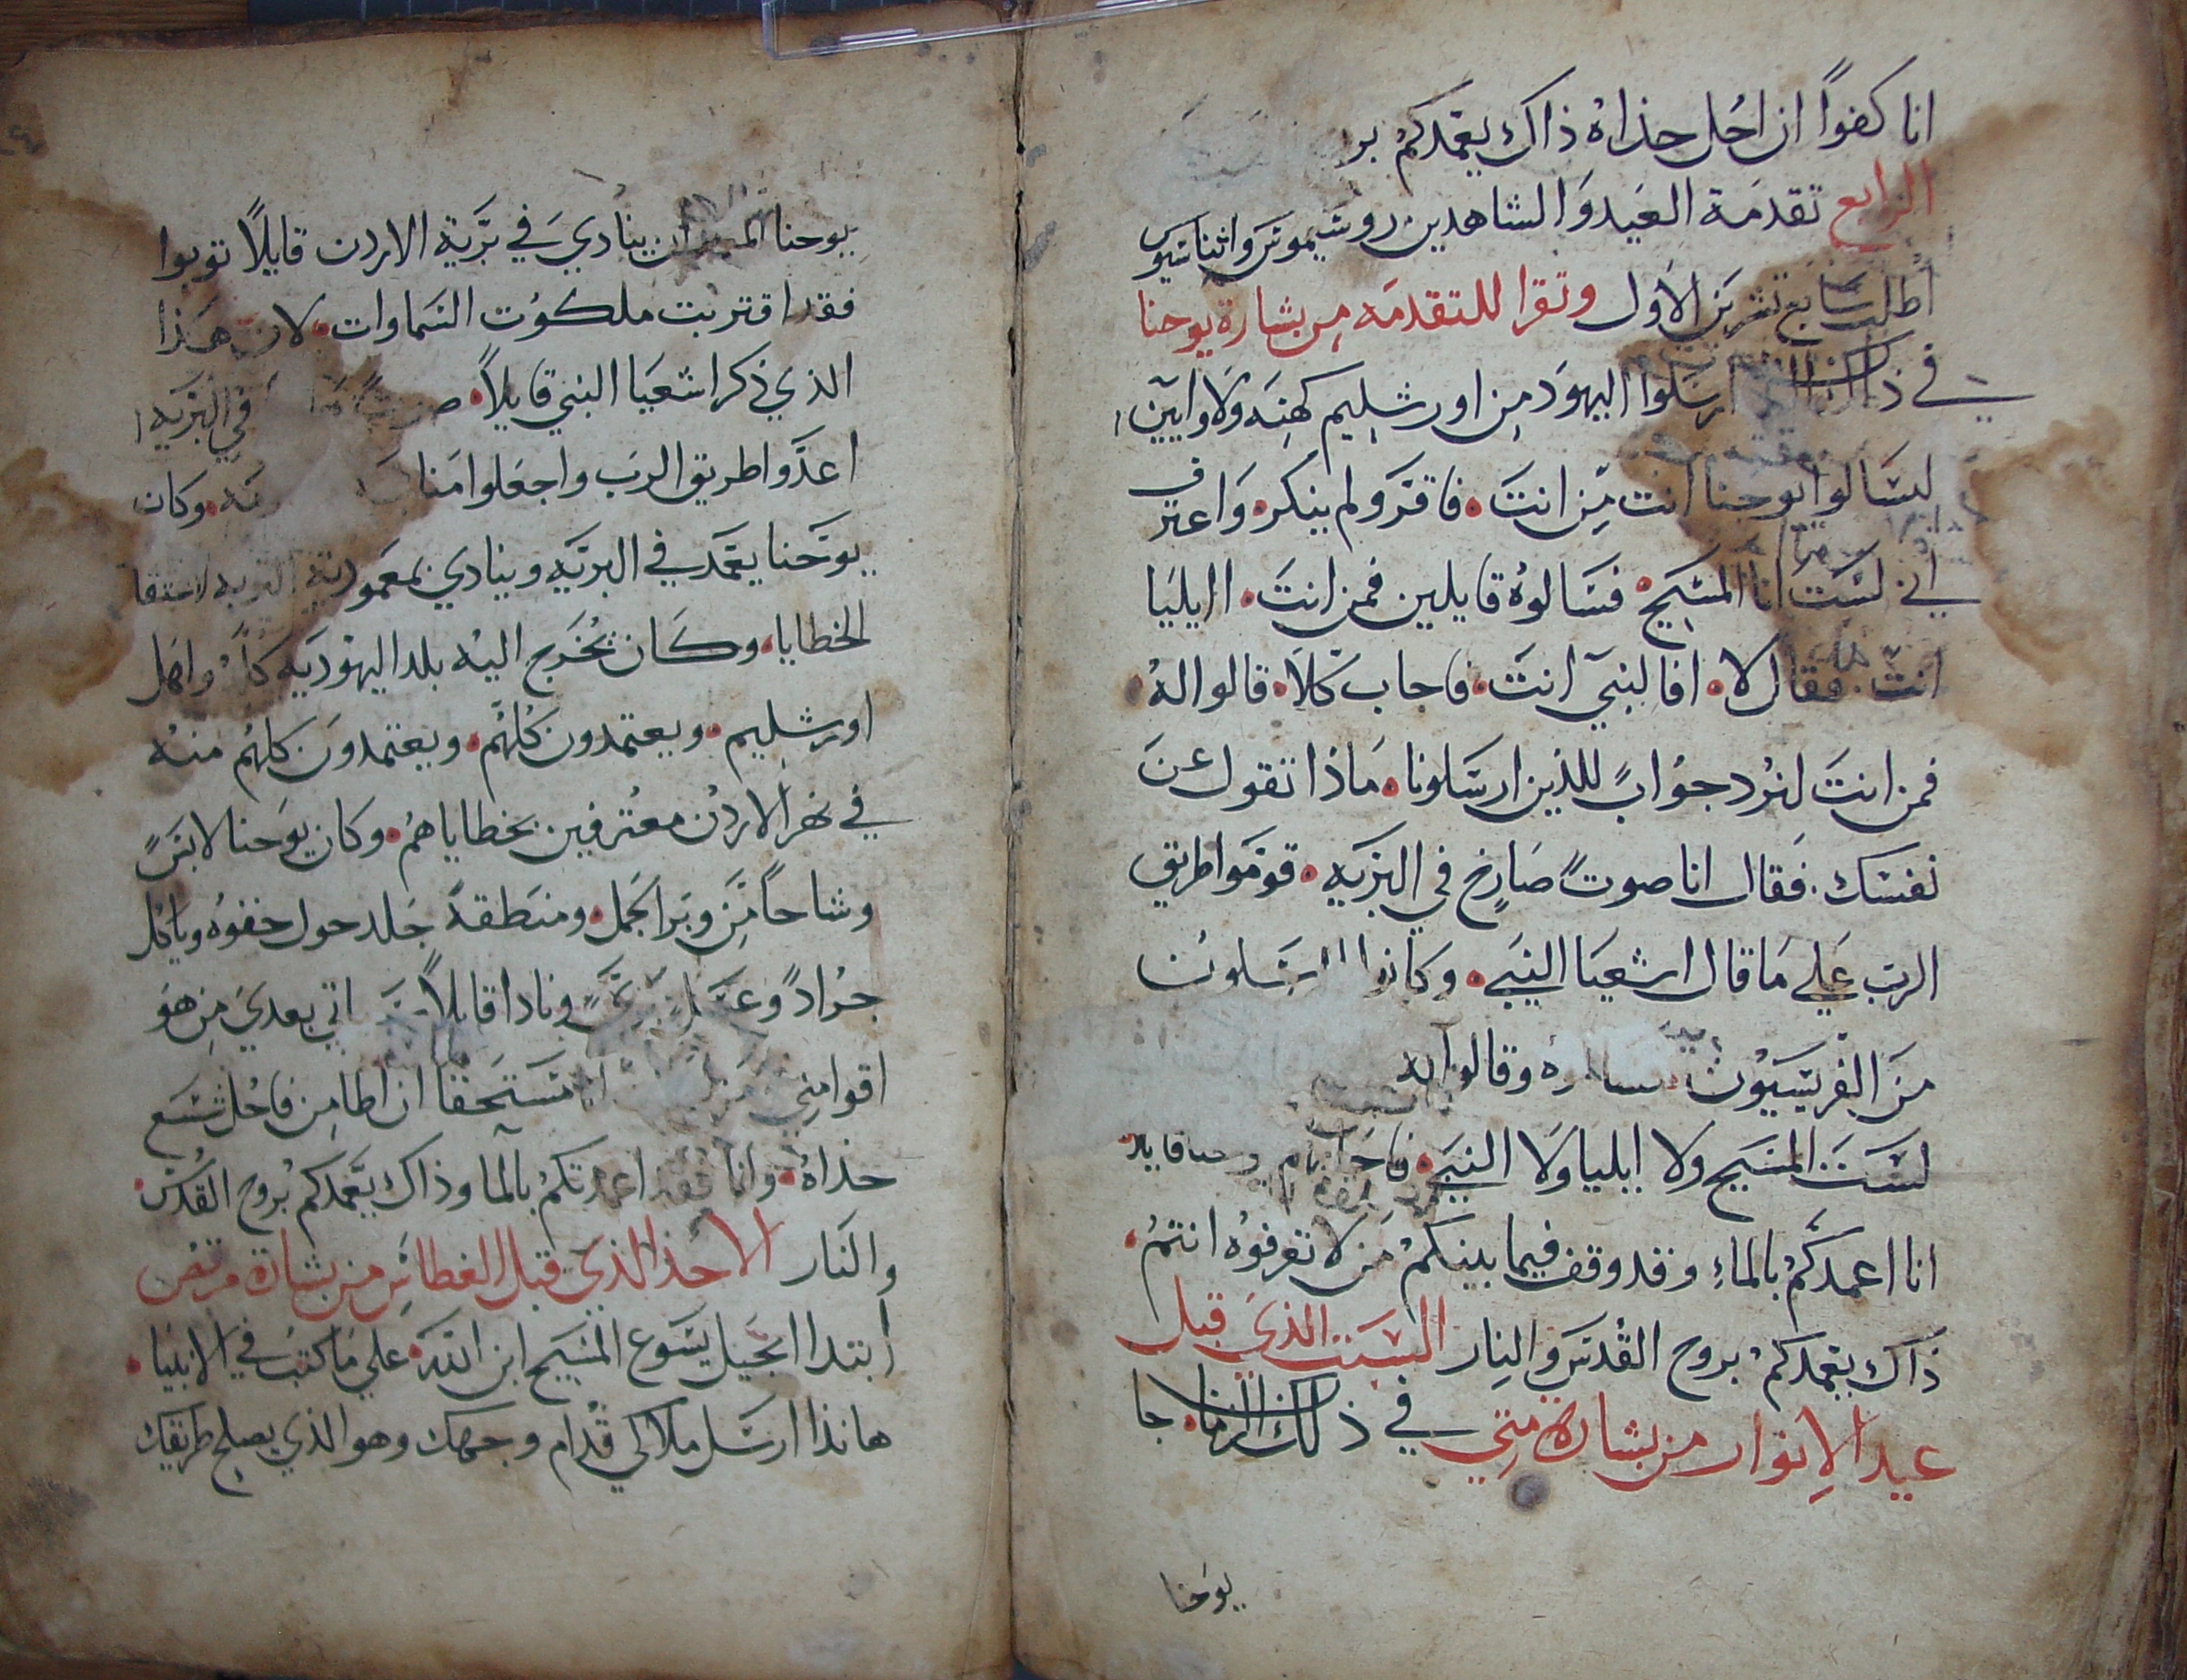 انا كفواً ان احُل حذاهُ ذاك يعمّدكمْ بر
الرابع تقدمَة العَيد وَالشاهدين روشيموسَ واثناسيوس
اطلب سَابع تشرينَ الاَول وتقرا للتقدمَه مِن بشارة يوحنا
في ارسَلوا اليهوَد مِن اورشلِيم كهنَه ولاوايين
ليسَالوا يوحنا انت مِّن انتَ • فاقرَّ ولم ينكر • وَاعترف
اني لسَت انا المسَيح • فسَالوهُ قايلين فمن انتَ • اايليَا
انتَ • فقال لا • افالنبيَ انتَ • فاجاب كلاَ • قالوا لهُ
فمن انتَ لنرُد جوُابً للذين ارسَلونا • مَاذا تقول عن
نفسَك • فقال انا صوتً صَارخ في البرَيه • قومَوا طريق
الربّ عَلي مَا قال اشعيَا النبَي • وكانوا
منَ الفَريسَيوُن وقالوا له
لسَتَ المسَيح ولا ايليا ولَا النبَي • قايلا •
انا اعمدَكمُ بالماءِ وقد وقف فيما بينكمْ مَن لا تعرفوُه انتمُ •
ذاك يعمدكمْ بروح القُدسَ وَالنِار السَبت الذيَ قبل
عيد الاِنوار من بشارة متِي في ذلك الزمان • جا
يوَحنا
يوحنا ينادَيَ في برَّية الاردن قايلاً توبوا
فقد اقتربت ملكوُت السَماوات • لان هَذا
الذي ذكر اشعيَا النبي قايلاً • في البرَيَه
اعدَّوا طريق الربَ واجعَلوا وكان
يوحَنا يعمَد في البريَه وينادي بمعمَودية التوبه
الخطايا • وكَان يُخرَج اليْه بلد اليهْودَيه واهَل
اورشلِيم • ويعتمدون كُلهُم • ويعتمدوَن كلهُم منهْ
في نهر الاردنْ معتُرفين بخطاياهمُ • وكان يوَحنا لابسً
وشاحاً مَن وبَر الجَمل • ومنطقةً جَلد حول حقوُه وياكل
جرُادً ونادا قايلاً اتي بعديَ مِن هوَ
اقوا منِي مسَتحَقاً ان اطامِن فاحُل شسَع
حذاهُ • وانا فقد اعمدتكمُ بالما وذاك يعَّمدكمُ برُوح القدُسَ •
والنَار الاحد الذي قبل الغطاس مِن بشارة مرقسَ
أبتدا انجَيل يسَوع المسَيح ابن اللّه • علي مَا كتبَ في الانبيَا •
هانذا ارسَل ملاكي قُدام وجهك وهو الذي يصلح طريقك